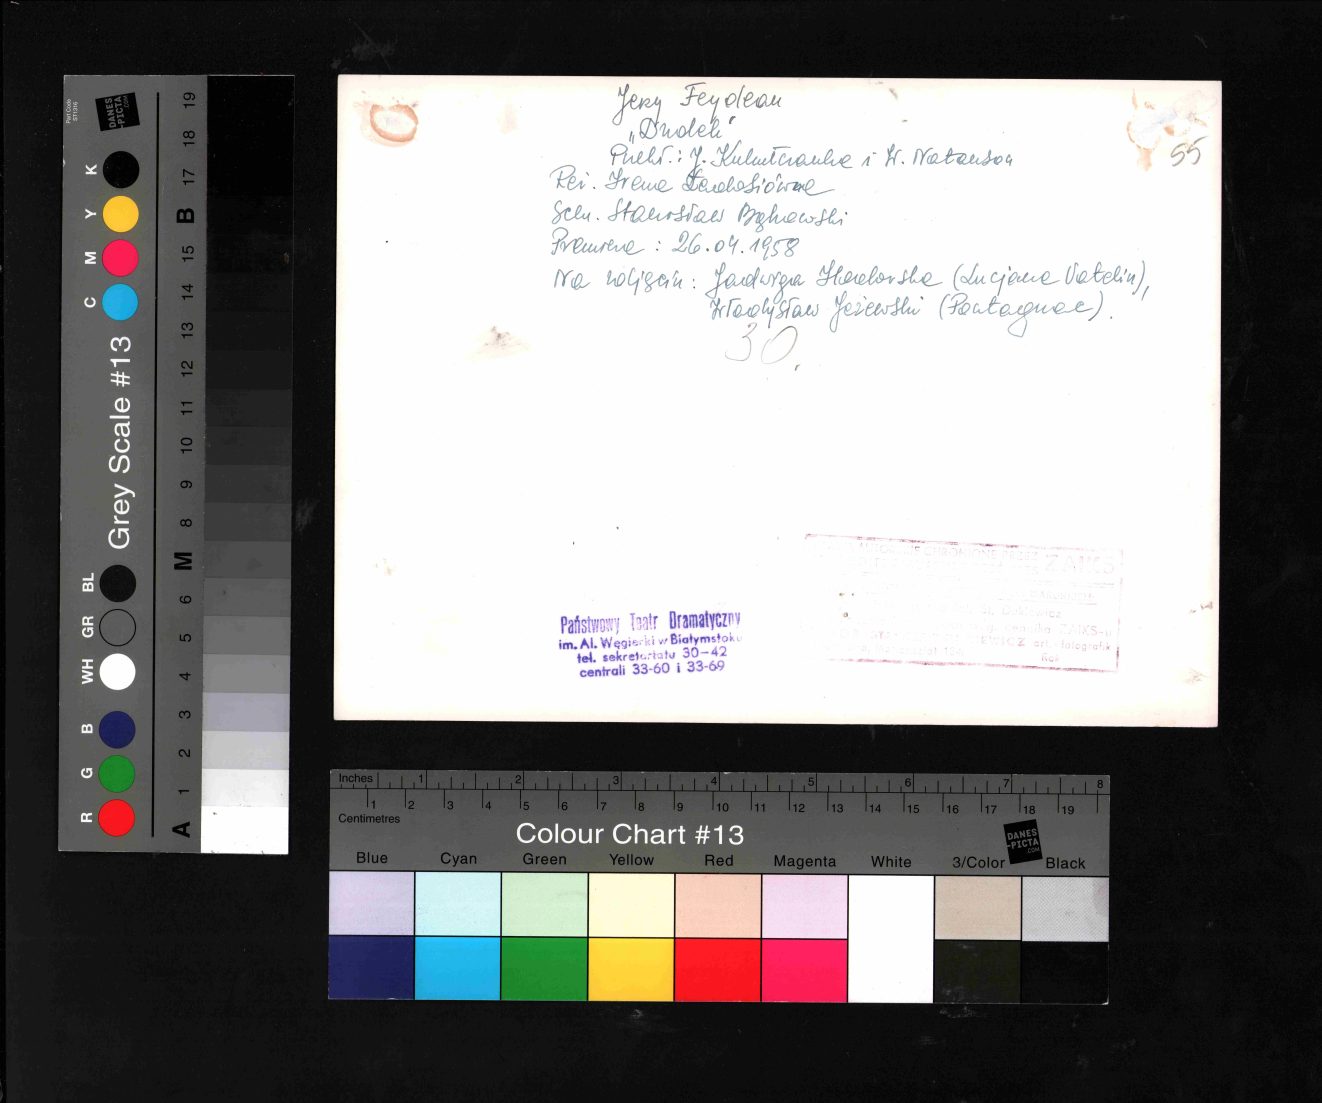 Jerzy Feydeau
"Dudek"
55
Przekł.: J. i W. Natanson
Reż. Irena
Scen. Stanisław Bąkowski
Premiera: 26.04.1958
Na zdjęciu: Jadwiga (Lucjana Vatelin),
Władysław Jeżewski (Pontagnac).
30
Państwowy Teatr Dramatyczny
im. Al. Węgierki w Białymstoku
tel. sekretariatu 30-42
centrali 33-60 i 33-69
CHRONIONE PRZEZ ZAIKS
art. fotografik
Part Code
ST1316
DANES
-PICTA
.COM
Grey Scale #13
K Y M C BL GR WH B G R
19 18 17 B 15 14 13 12 11 10 9 8 M 6 5 4 3 2 1 A
Inches 1 2 3 4 5 6 7 8
1 2 3 4 5 6 7 8 9 10 11 12 13 14 15 16 17 18 19
Centimetres
Colour Chart #13
DANES
-PICTA
.COM
Blue Cyan Green Yellow Red Magenta White 3/Color Black